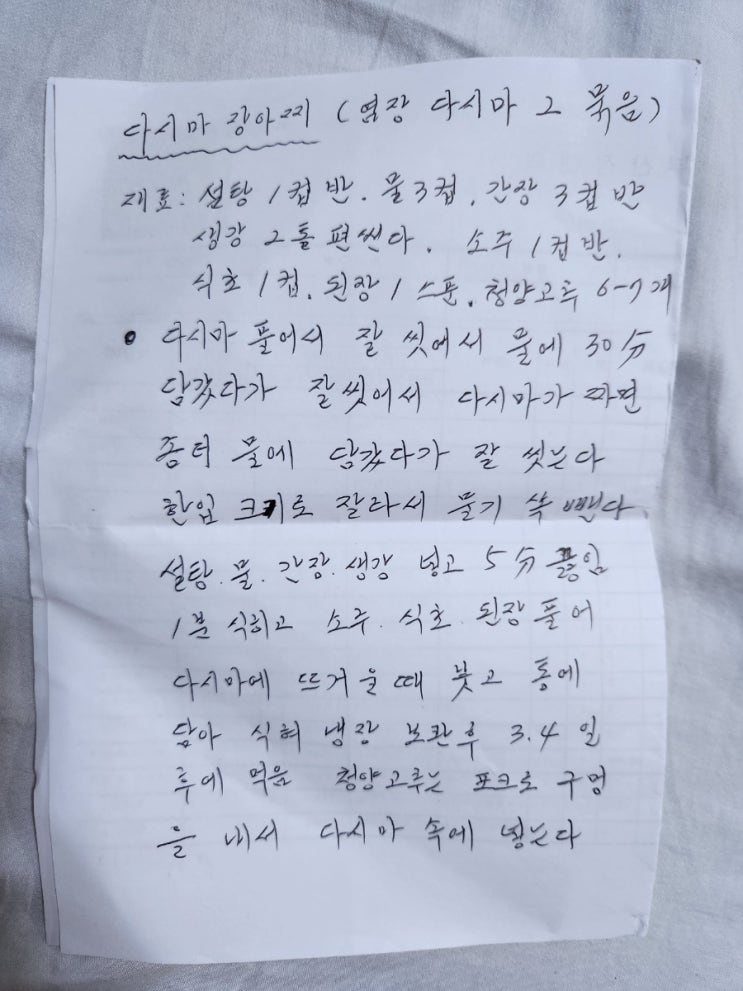 다시마 장아찌 (염장 다시마 2 묶음)
재료: 설탕 1컵 반. 물 3컵. 간장 3컵 반
생강 2톨 편썬다. 소주 1컵 반.
식초 1컵. 된장 1 스푼. 청양고추 6-7개
• 다시마 풀어서 잘 씻어서 물에 30分
담갔다가 잘 씻어서 다시마가 짜면
좀더 물에 담갔다가 잘 씻는다
한입 크기로 잘라서 물기 쏙 뺀다.
설탕. 물. 간장. 생강 넣고 5分 끓임
1분 식히고 소주. 식초. 된장 풀어
다시마에 뜨거울때 붓고 통에
담아 식혀 냉장 보관후 3.4 일
후에 먹음 청양고추는 포크로 구멍
을 내서 다시마 속에 넣는다